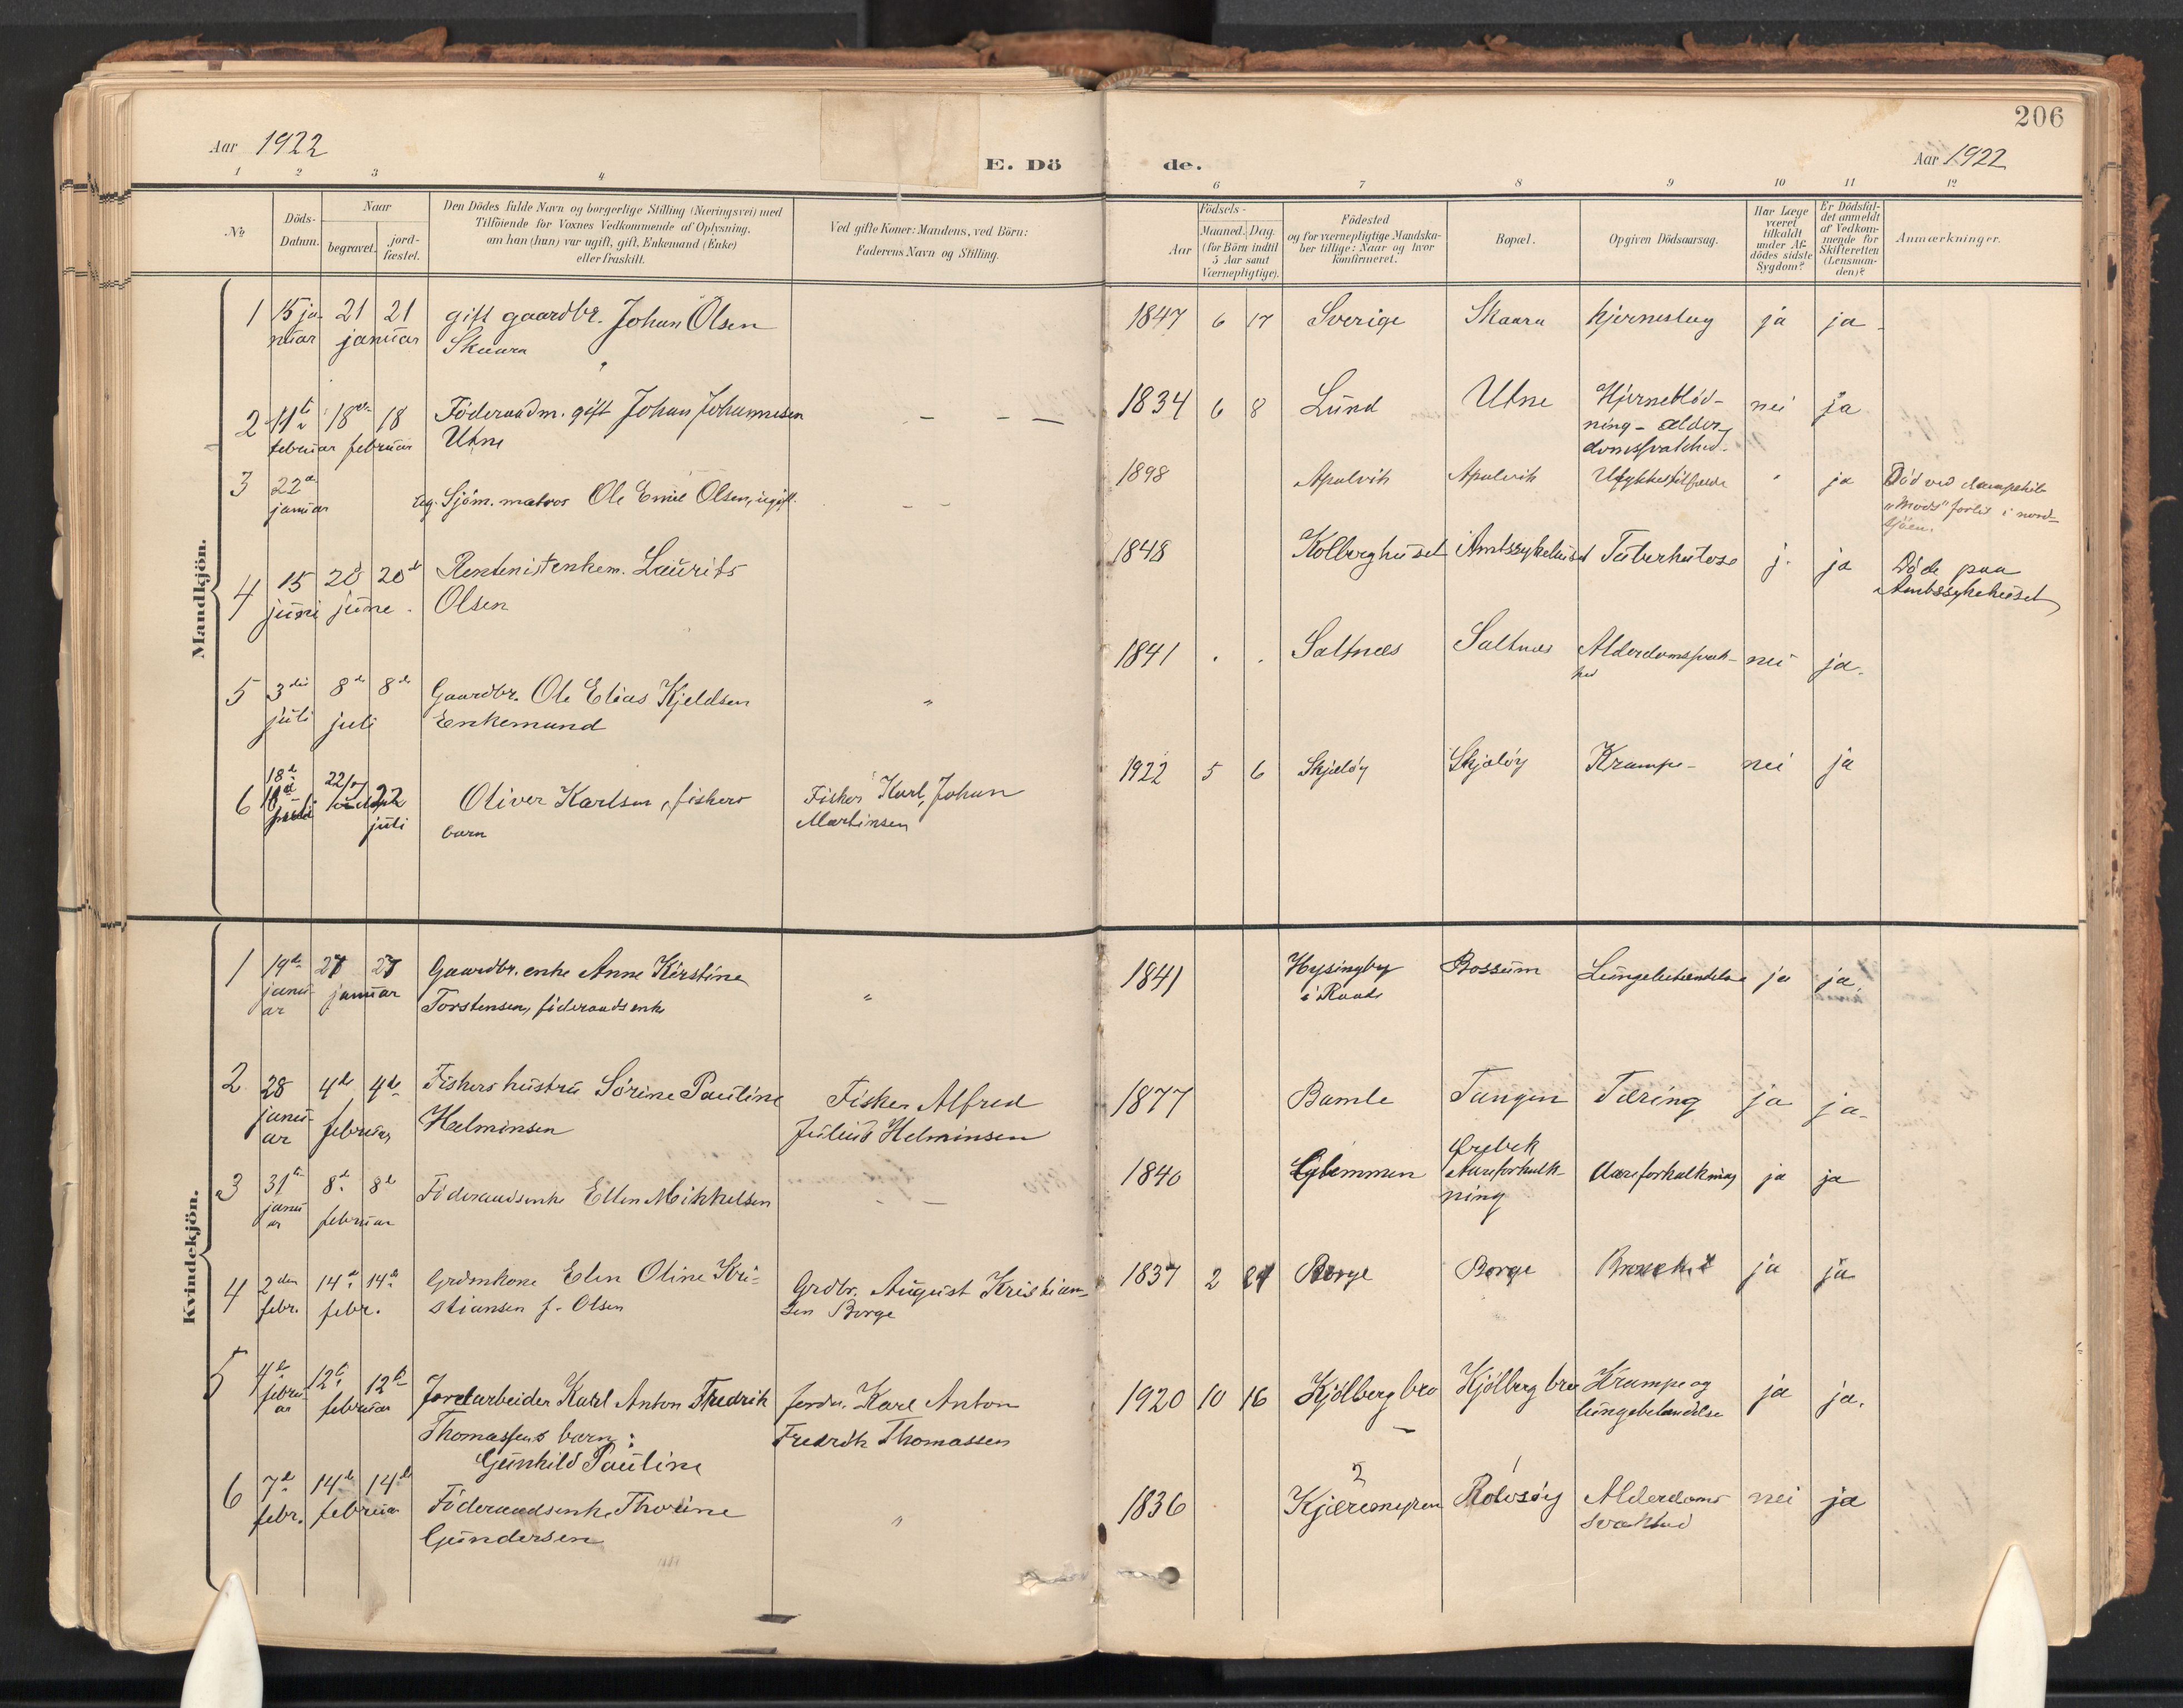 206
Aar 1922
E. Dö de.
Aar 1922
1 2 3 4 6 7 8 9 10 11 12
No
Döds-
Datum.
Naar
begravet.
jord-
fæstet.
Den Dödes fulde Navn og borgerlige Stilling (Næringsvei) med
Tilföiende for Voxnes Vedkommende af Oplysning,
om han (hun) var ugift, gift, Enkemand (Enke)
eller fraskilt.
Ved gifte Koner: Mandens, ved Börn:
Faderens Navn og Stilling.
Födsels-
Aar
Maaned. Dag.
(for Börn indtil
5 Aar samt
Værnepligtige).
Födested
og for værnepligtige Mandska-
ber tillige: Naar og hvor
konfirmeret.
Bopæl.
Opgiven Dödsaarsag.
Har Læge
været
tilkaldt
under Af-
dödes sidste
Sygdom?
Er Dödsfal-
det anmeldt
af Vedkom-
mende for
Skifteretten
(Lensman-
den)?
Anmærkninger.
Mandkjön.
1 15 ja- 21 21 gift gaardbr. Johan Olsen 1847 6 17 Sverige Skaara hjerneslag ja ja
nuar januar Skaara
2 11te 18de 18 Föderaadm. gift Johan Johannesen - - - 1834 6 8 Lund Utne Hjerneblöd- nei ja
februar februar Utne ning - alder-
domssvakhed.
3 22de Ug. Sjöm. matros Ole Emil Olsen, ugift. - - 1898 Apalvik Apalvik Ulykkestilfælde " ja Död ved dampskib
januar "Mods" forlis i nord-
sjöen.
4 15 20 20de Rentenist enkem. Laurits 1848 Kolberghuset Amtssykehuset Tuberkulose j. ja Döde paa
juni june. Olsen Amtssykehuset
5 3die 8de 8de Gaardbr. Ole Elias Kjeldsen " 1841 . . Saltnæs Saltnæs Alderdomssvak- nei ja.
juli juli Enkemand hed
6 18de 22/7 22 Oliver Karlsen, fiskers Fisker Karl Johan 1922 5 6 Skjælöy Skjælöy Krampe- nei ja
juli juli barn Martinsen
Kvindekjön.
1 19de 27 27 Gaardbr. enke Anne Kirstine " 1841 Hysingby Rossum Lungebetændelse ja ja.
janu- januar Torstensen, föderaadsenke i Raade
ar
2 28 4de 4de Fiskers hustru Sörine Pauline Fisker Alfred 1877 Bamle Tangen Tæring ja ja.
janu- februar Helminsen Julius Helminsen
ar
3 31te 8de 8de Föderaadsenke Ellen Mikkelsen - - 1840 Glemmen Ørebek Aareforkalk- Aareforkalkning ja ja
janu- februar ning
ar
4 2den 14de 14de Grdmkone Elen Oline Kri- Grdbr. August Kristian- 1837 2 Borge Borge ja ja
febr. febr. stiansen f. Olsen sen Borge
5 4de 12te 12te Jordarbeider Karl Anton Fredrik Jorda. Karl Anton 1920 10 16 Kjölberg bro Kjölberg bro Krampe og ja ja.
febru- februar Thomassens barn: Fredrik Thomassen lungebetændelse
ar Gunhild Pauline
6 7de 14de 14de Föderaadsenke Thorine " 1836 Rolvsöy Alderdoms nei ja
febr. februar Gundersen svakhed